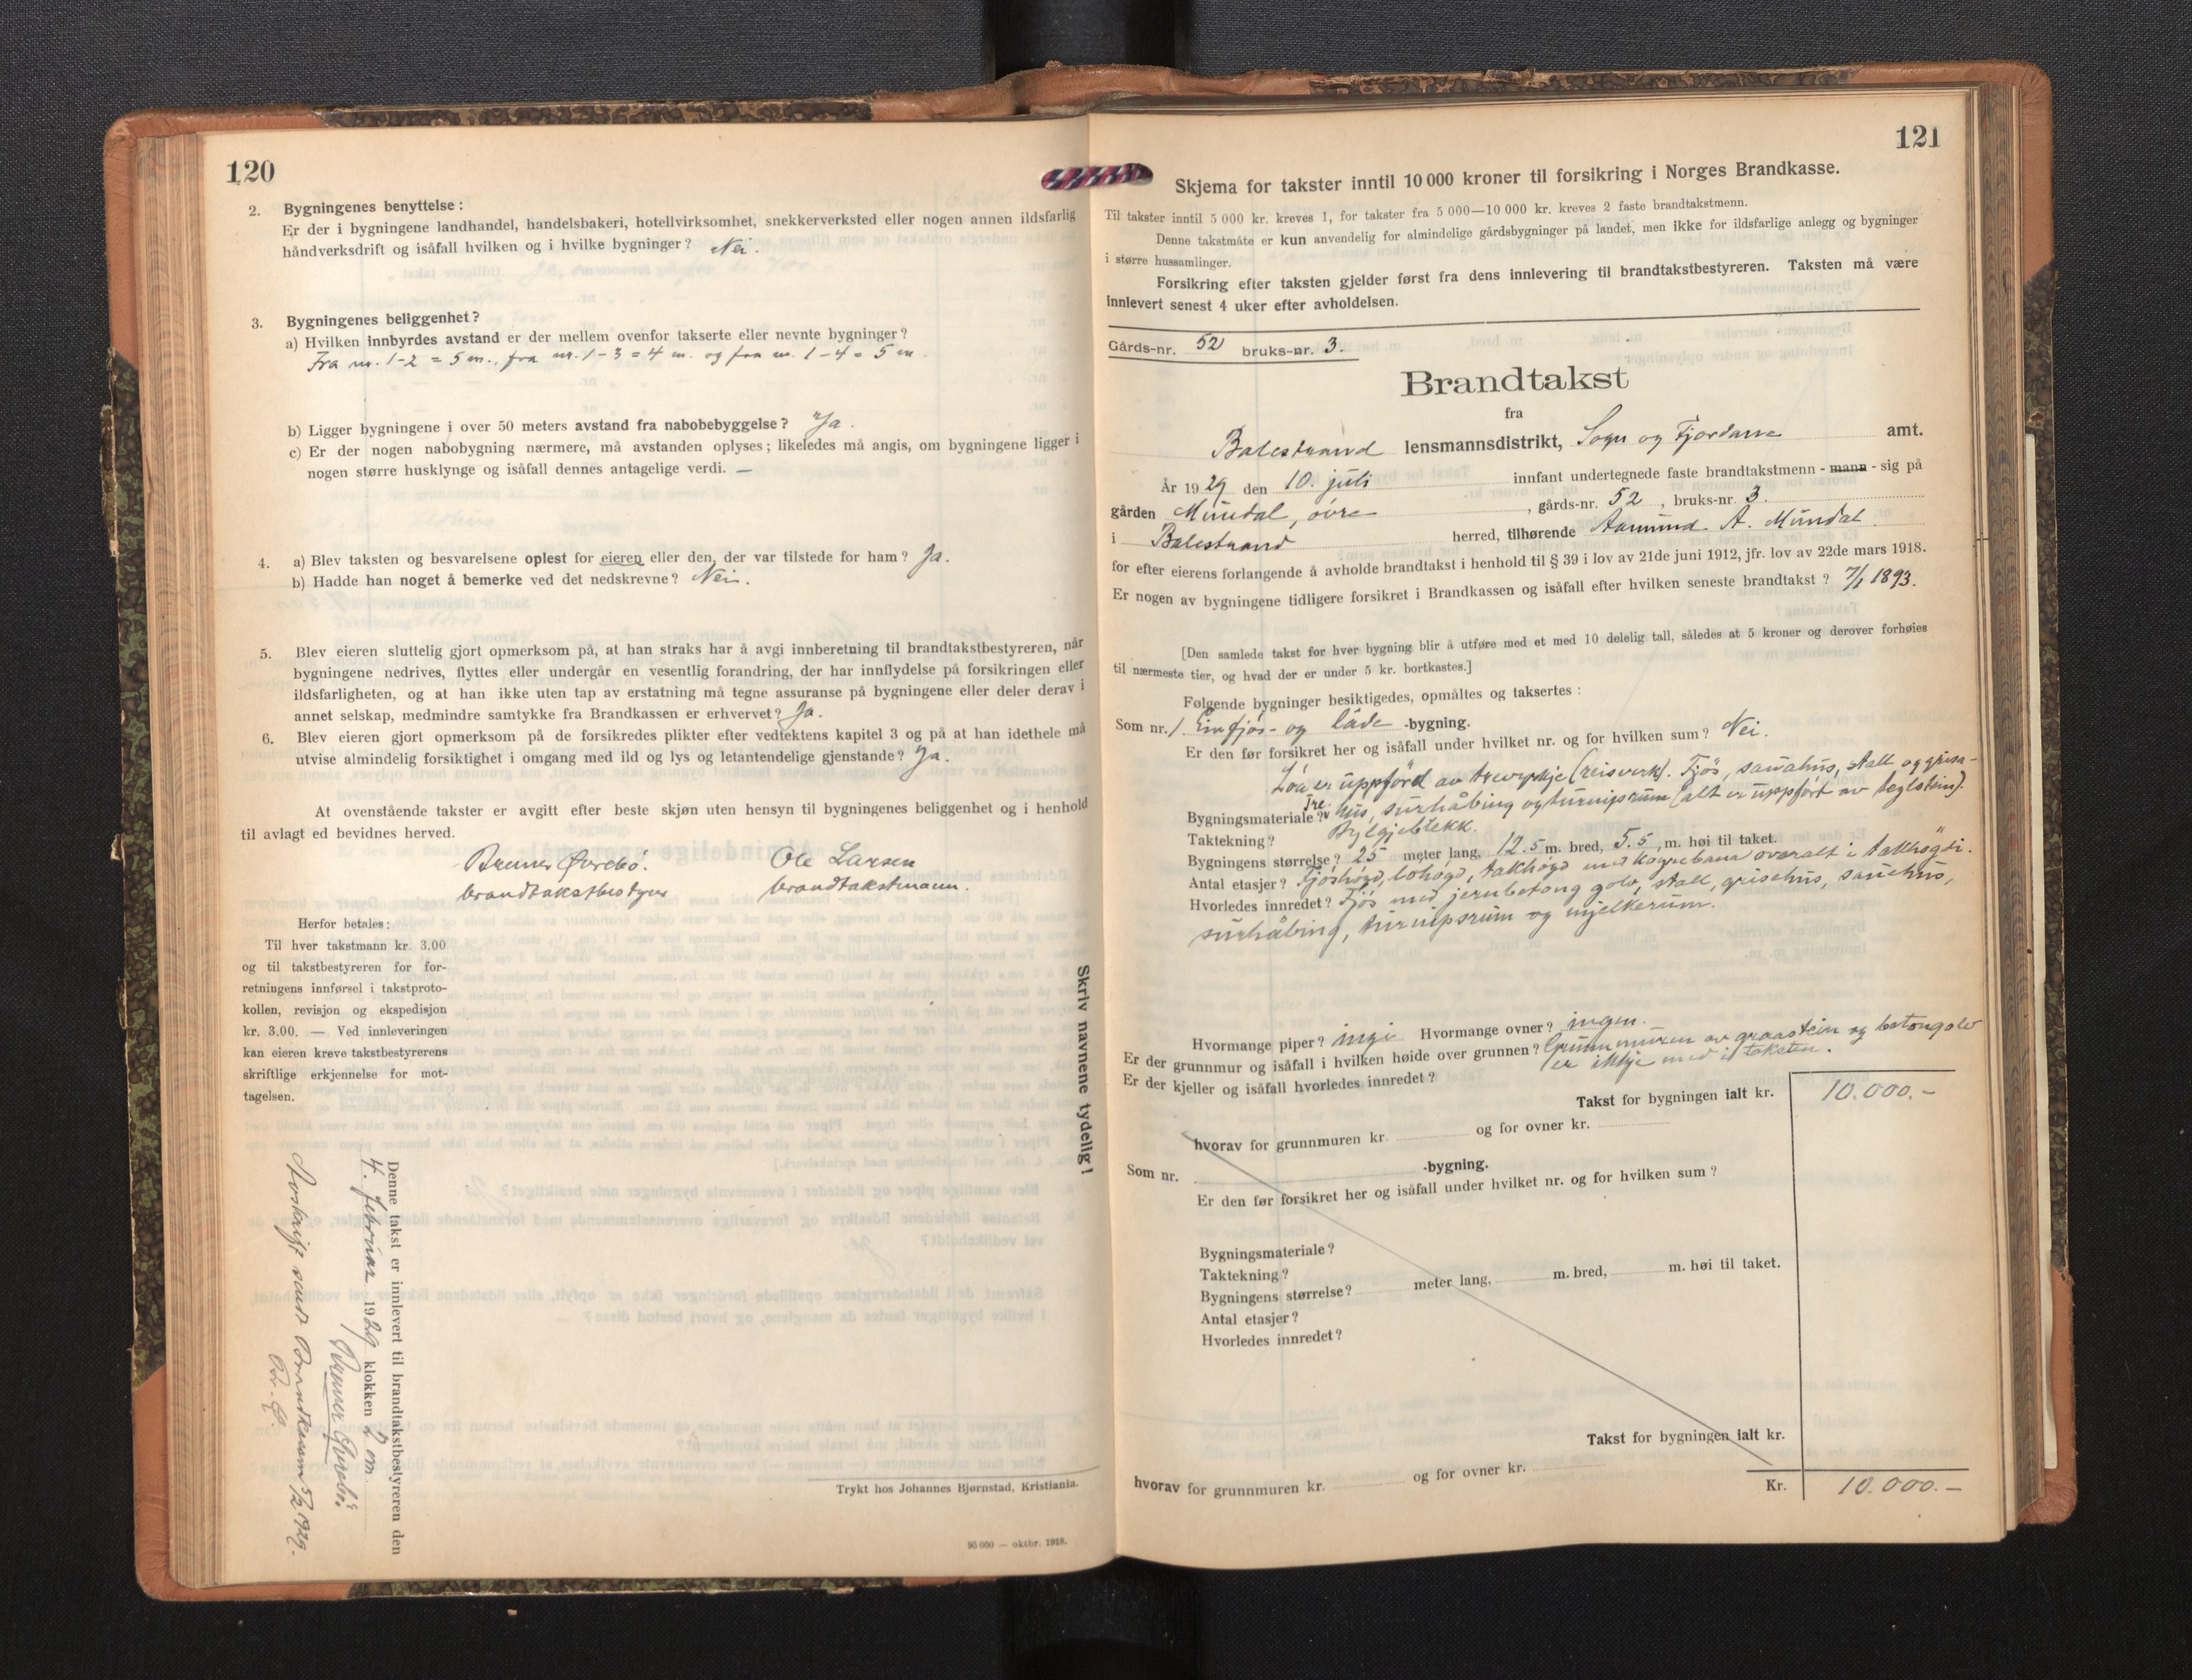 120
2. Bygningenes benyttelse:
Er der i bygningene landhandel, handelsbakeri, hotellvirksomhet, snekkerverksted eller nogen annen ildsfarlig
håndverksdrift og isåfall hvilken og i hvilke bygninger? Nei.
3. Bygningenes beliggenhet?
a) Hvilken innbyrdes avstand er der mellem ovenfor takserte eller nevnte bygninger?
Fra nr. 1-2 = 5 m., fra nr. 1-3 = 4 m. og fra nr. 1-4 = 5 m.
b) Ligger bygningene i over 50 meters avstand fra nabobebyggelse? Ja.
c) Er der nogen nabobygning nærmere, må avstanden oplyses; likeledes må angis, om bygningene ligger i
nogen større husklynge og isåfall dennes antagelige verdi. —
4. a) Blev taksten og besvarelsene oplest for eieren eller den, der var tilstede for ham? Ja.
b) Hadde han noget å bemerke ved det nedskrevne? Nei.
5. Blev eieren sluttelig gjort opmerksom på, at han straks har å avgi innberetning til brandtakstbestyreren, når
bygningene nedrives, flyttes eller undergår en vesentlig forandring, der har innflydelse på forsikringen eller
ildsfarligheten, og at han ikke uten tap av erstatning må tegne assuranse på bygningene eller deler derav i
annet selskap, medmindre samtykke fra Brandkassen er erhvervet? Ja.
6. Blev eieren gjort opmerksom på de forsikredes plikter efter vedtektens kapitel 3 og på at han idethele må
utvise almindelig forsiktighet i omgang med ild og lys og letantendelige gjenstande? Ja.
At ovenstående takster er avgitt efter beste skjøn uten hensyn til bygningenes beliggenhet og i henhold
til avlagt ed bevidnes herved.
Bremer Øvrebö. Ole Larsen
brandtakstbestyrer brandtakstmann.
Herfor betales:
Til hver takstmann kr. 3.00
og til takstbestyreren for for-
retningens innførsel i takstproto-
kollen, revisjon og ekspedisjon
kr. 3.00. — Ved innleveringen
kan eieren kreve takstbestyrerens
skriftlige erkjennelse for mot-
tagelsen.
Skriv navnene tydelig!
Denne takst er innlevert til brandtakstbestyreren den
4. februar 1929 klokken 2 em.
Bremer Øvrebö.
Avskrift sendt Brandkassen 5/2 1929.
Br. Ø.
Trykt hos Johannes Bjørnstad, Kristiania.
95 000 — oktbr. 1918.
121
Skjema for takster inntil 10 000 kroner til forsikring i Norges Brandkasse.
Til takster inntil 5 000 kr. kreves 1, for takster fra 5 000—10 000 kr. kreves 2 faste brandtakstmenn.
Denne takstmåte er kun anvendelig for almindelige gårdsbygninger på landet, men ikke for ildsfarlige anlegg og bygninger
i større hussamlinger.
Forsikring efter taksten gjelder først fra dens innlevering til brandtakstbestyreren. Taksten må være
innlevert senest 4 uker efter avholdelsen.
Gårds-nr. 52 bruks-nr. 3.
Brandtakst
fra
Balestrand lensmannsdistrikt, Sogn og Fjordane amt.
År 1929 den 10. juli innfant undertegnede faste brandtakstmenn - mann - sig på
gården Mundal, øvre, gårds-nr. 52, bruks-nr. 3.
i Balestrand herred, tilhørende Aamund A. Mundal.
for efter eierens forlangende å avholde brandtakst i henhold til § 39 i lov av 21de juni 1912, jfr. lov av 22de mars 1918.
Er nogen av bygningene tidligere forsikret i Brandkassen og isåfall efter hvilken seneste brandtakst? 7/1 1893.
[Den samlede takst for hver bygning blir å utføre med et med 10 delelig tall, således at 5 kroner og derover forhøies
til nærmeste tier, og hvad der er under 5 kr. bortkastes.]
Følgende bygninger besiktigedes, opmåltes og taksertes:
Som nr. 1 Ein fjøs- og låde -bygning.
Er den før forsikret her og isåfall under hvilket nr. og for hvilken sum? Nei.
Löa er uppförd av treverkje (reisverk). Fjös, sauahus, stall og grisa-
Bygningsmateriale? Tre. hus, surhåbing og turnipsrum (alt er uppfört av teglstein).
Taktekning? Bylgjeblekk.
Bygningens størrelse? 25 meter lang, 12.5 m. bred, 5.5, m. høi til taket.
Antal etasjer? Fjöshögd, löhögd, takhögd med köyrebana overalt i takhögdi.
Hvorledes innredet? Fjös med jernbetong golv, stall, grisehus, sauehus,
surhåbing, turnipsrum og mjelkerum.
Hvormange piper? ingi Hvormange ovner? ingen.
Er der grunnmur og isåfall i hvilken høide over grunnen? Grunnmuren av graastein og betongolv
Er der kjeller og isåfall hvorledes innredet? er ikkje med i taksten.
Takst for bygningen ialt kr. 10.000.-
hvorav for grunnmuren kr. og for ovner kr.
Som nr. -bygning.
Er den før forsikret her og isåfall under hvilket nr. og for hvilken sum?
Bygningsmateriale?
Taktekning?
Bygningens størrelse? meter lang, m. bred, m. høi til taket.
Antal etasjer?
Hvorledes innredet?
Takst for bygningen ialt kr.
hvorav for grunnmuren kr. og for ovner kr.
Kr. 10.000.-